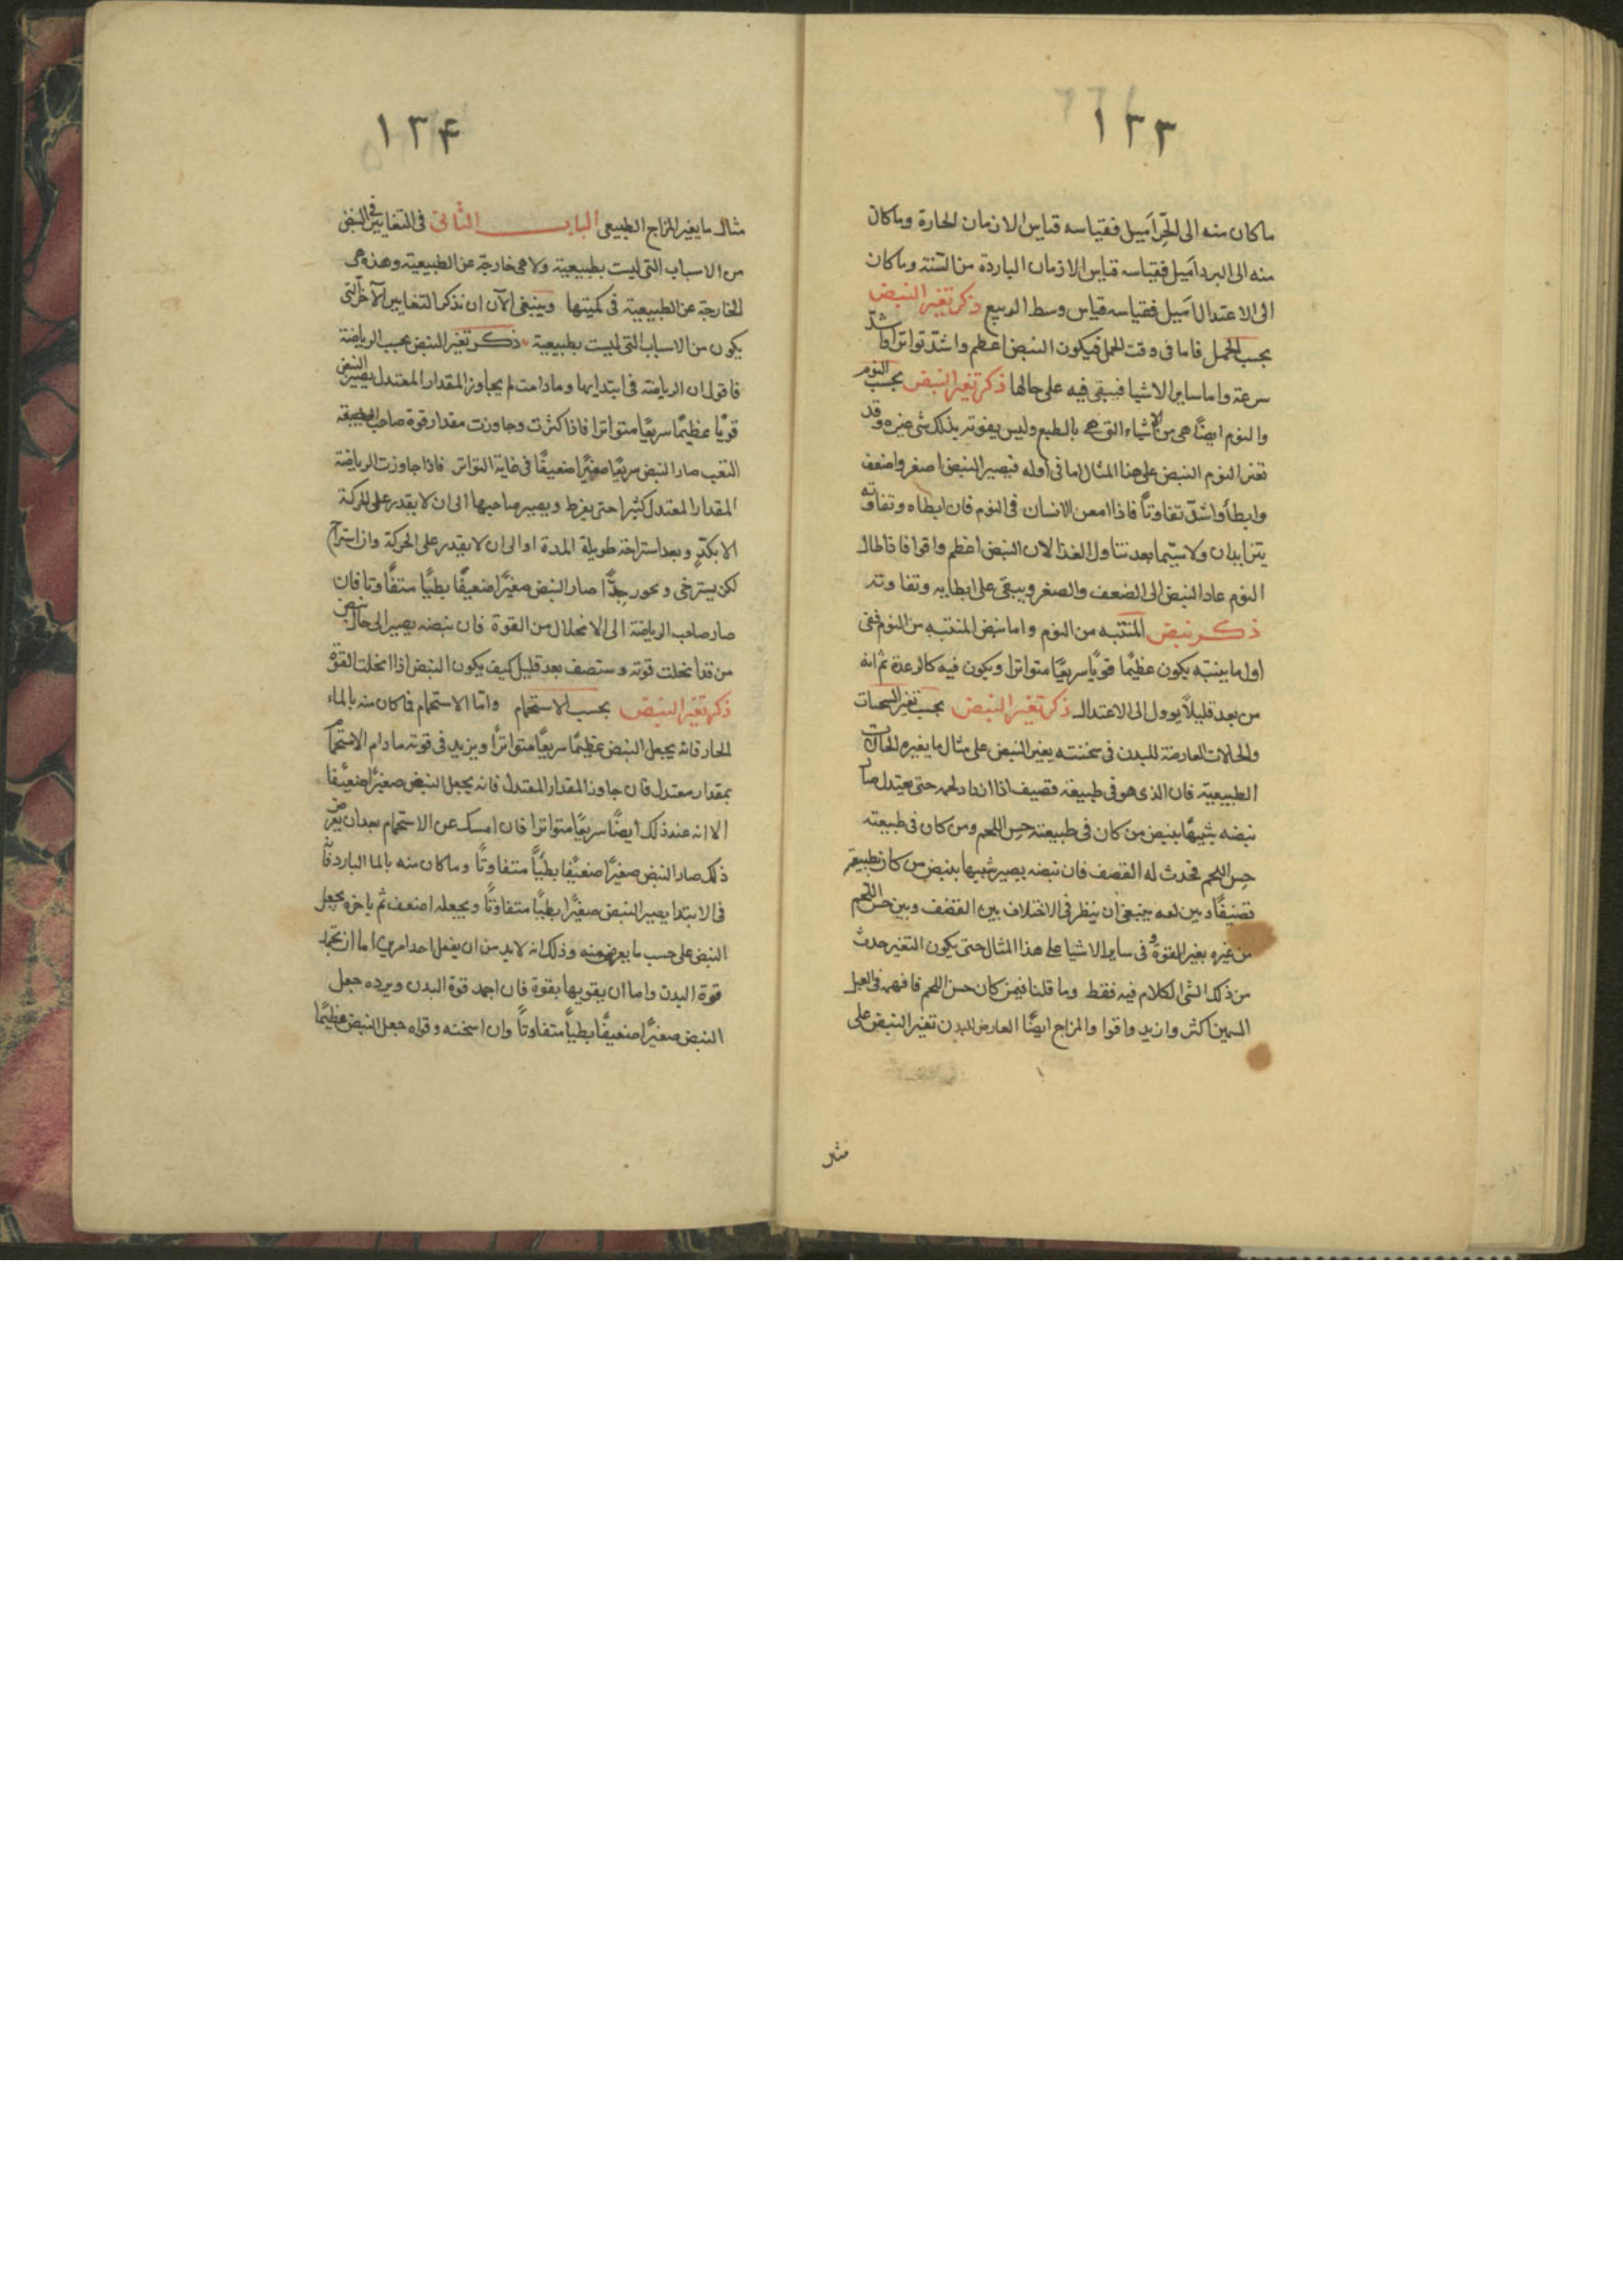 ١٣٣
ما كان منه الى الحرّ اميل فقياسه قياس الازمان الحارة وما كان
منه الى البرد اميل فقياسه قياس الازمان الباردة من السّنة وما كان
الى الاعتدال اميل فقياسه قياس وسط الربيع ذكر تغير النبض
بحسب الحمل فاما فى وقت الحمل فيكون النبض اعظم واشدّ تواترا واشدّ
سرعة واما ساير الاشيا فيبقى فيه على حالها ذكر تغير النبض بحسب النوم
والنوم ايضًا هى من الاشياء التى هى بالطبع وليس يفوته بذلك شى غيره وقد
تغير النوم النبض على هذا المثال اما فى اوله فيصير النبض اصغر واضعف
وابطأ واشدّ تفاوتاً فاذا امعن الانسان فى النوم فان ابطاه وتفاوته
يتزايدان ولا سيّما بعد تناول الغذا لان النبض اعظم واقوا فاذا طال
النوم عاد النبض الى الضعف والصغر ويبقى على ابطايه وتفاوته
ذكر نبض المنتبه من النوم واما نبض المنتبه من النوم ففى
اول ما ينتبه يكون عظيمًا قويًا سريعًا متواترا ويكون فيه كالرعدة ثم انه
من بعد قليلاً يوول الى الاعتدال ذكر تغير النبض بحسب تغير السحنات
والحالات العارضة للبدن فى سخنته يغير النبض على مثال ما يغيره الحالات
الطبيعية فان الذى هو فى طبيعة قضيف اذا ازداد لحمه حتى يعتدل صار
نبضه شبيهًا بنبض من كان فى طبيعته حسن اللحم ومن كان فى طبيعته
حسن اللحم فحدث له القضف فان نبضه يصير شبيها بنبض من كان بطبيعته
قضيفًا وبين انه ينبغى ان ينظر فى الاختلاف بين القضف وبين حسن اللحم
من غيره بغير القوة وفى ساير الاشيا على هذا المثال حتى يكون التغير حدث
من ذلك الشى الكلام فيه فقط وما قلنا فيمن كان حسن اللحم فافهمه فى العبل
السمين اكثر وازيد واقوا والمزاج ايضًا العارض للبدن تغير النبض على
مثر
١٣۴
مثال ما يغير المزاج الطبيعى الباب الثانى فى التغاير فى النبض
من الاسباب التى ليست بطبيعية ولا هى خارجة عن الطبيعية وهذه هى
الخارجة عن الطبيعية فى كميتها وينبغى الآن ان نذكر التغايير الآخر التى
يكون من الاسباب التى ليست بطبيعية ذكر تغير النبض بحسب الرياضة
فاقول ان الرياضة فى ابتدايها وما دامت لم يجاوز المقدار المعتدل يصير النبض
قويًا عظيمًا سريعًا متواترا فاذا كثرت وجاوزت مقدار قوة صاحب الطبيعة
التعب صار النبض سريعًا صغيرًا ضعيفًا فى غاية التواتر فاذا جاوزت الرياضة
المقدار المعتدل كثيرا حتى يفرط ويصير صاحبها الى ان لا يقدر على الحركة
الا بكدٍّ وبعد استراحة طويلة المدة او الى ان لا يقدر على الحركة وان استراح
لكن يسترخى ويحور جدًّا صار النبض صغيرًا ضعيفًا بطيًا متفاوتا فان
صار صاحب الرياضة الى الانحلال من القوة فان نبضه يصير الى حال نبض
من قد انحلت قوته وسنصف بعد قليل كيف يكون النبض اذا انحلت القوة
ذكر تغير النبض بحسب الاستحمام وامّا الاستحمام فما كان منه بالماء
الحار فانه يجعل النبض عظيمًا سريعًا متواتراً ويزيد فى قوته ما دام الاستحمام
بمقدار معتدل فان جاوز المقدار المعتدل فانه يجعل النبض صغيرًا ضعيفًا
الا انه عند ذلك ايضًا سريعًا متواترا فان امسك عن الاستحمام بعد ان يعرض
ذلك صار النبض صغيرًا ضعيفًا بطيًا متفاوتًا وما كان منه بالما البارد فانه
فى الابتدا يصير النبض صغيرًا بطيًا متفاوتًا ويجعله اضعف ثم باخره يجعل
النبض على حسب ما يعرض منه وذلك انه لا بد من ان يفعل احد امرين اما ان يخمد
قوة البدن واما ان يقويها بقوة فان اخمد قوة البدن وبرده جعل
النبض صغيرًا ضعيفًا بطياً متفاوتاً وان اسخنه وقواه جعل النبض عظيمًا